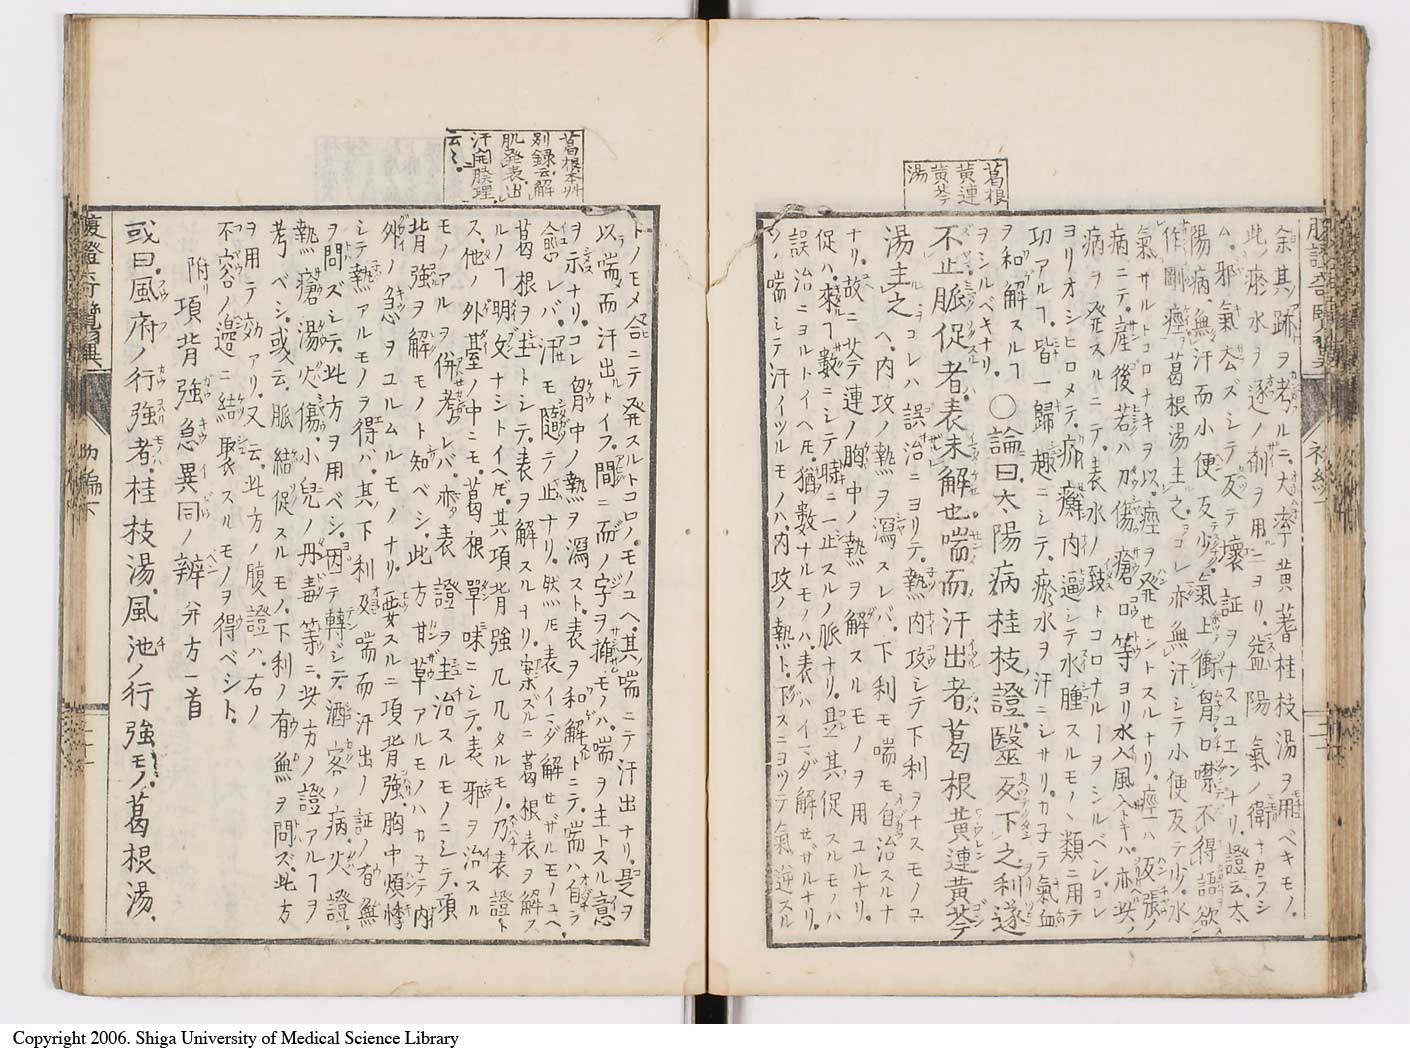 葛根
黄連
黄芩
湯
余其ノ跡ヲ考ルニ、大率黄蓍桂枝湯ヲ用ベキモノ、
此ノ瘀水ヲ逐ノ剤ヲ用ニヨリ、益陽氣ノ衛ナカフシ
ム、邪氣去ズシテ反テ壞証ヲナスユエンナリ、證云、太
陽病、無汗而小便反少、氣上衝胷、口噤不得語、欲
作剛痙、葛根湯主之、コレ亦無汗シテ小便反テ少、水
氣サルトコロナキヲ以、痙ヲ発セントスルナリ、痙ハ反張ノ
病ニテ、産後若ハ刀傷瘡口等ヨリ水入風入トキハ、亦此ノ
病ヲ発スルニテ、表水ノ致トコロナルヿヲシルベシ、コレ
ヨリオシヒロメテ、疥癬内逼シテ水腫スルモノヽ類ニ用テ
功アルヿ、皆一歸趣ニシテ、瘀水ヲ汗ニサリ、カ子テ氣血
ヲ和解スルヿヲシルベキナリ
○論曰、太陽病桂枝證、醫反下之、利遂
不止、脈促者、表未解也、喘而汗出者、葛根黄連黄芩
湯主之
コレハ誤治ニヨリテ、熱内攻シテ下利ヲナスモノユ
ヘ、内攻ノ熱ヲ瀉スレバ、下利モ喘モ自治スルナ
ナリ、故ニ芩連ノ胸中ノ熱ヲ解スルモノヲ用ユルナリ、
促ハ、來ヿ數ニシテ時ニ一止スルノ脈ナリ、且其促スルモノハ
誤治ニヨルトイヘ𪜈、猶數ナルモノハ、表ハイマダ解セザルナリ、
ソノ喘シテ汗イツルモノハ、内攻ノ熱ト、下スニヨツテ氣逆スル
葛根本艸
別録云、解
肌発表、出
汗開腠理
云〻、
トノモメ合ニテ発スルトコロノモノユヘ、其喘ニテ汗出ナリ、是ヲ
以喘而汗出トイフ、間ニ而ノ字ヲ挿モノハ、喘ヲ主トスル意
ヲ示ナリ、コレ胷中ノ熱ヲ瀉スト、表ヲ和解トニテ、喘ハ自ラ
愈レバ、汗モ隨テ止ナリ、然𪜈、表イマダ解セザルモノユヘ、
葛根ヲ主トシテ、表ヲ解スルナリ、案ズルニ葛根表ヲ解ス
ルノヿ明文ナシトイヘ𪜈、其項背強几几タルモノ、乃表證ト
ス、他ノ外䑓ノ中ニモ、葛根單味ニシテ、表邪ヲ治スル
モノアルヲ併考レバ、亦表證ヲ主治スルモノニシテ、項
背強ヲ解モノト知ベシ、此方甘草アルモノハカ子テ内
外ノ急ヲユルムルモノナリ、要スルニ項背強、胸中煩悸
シテ熱アルモノヲ得バ、其下利及喘而汗出ノ証ノ有無
ヲ問ズシテ、此方ヲ用ベシ、因テ轉ジテ、酒客ノ病、火證、
熱瘡、湯火傷、小兒ノ丹毒等ニ、此方ノ證アルヿヲ
考ベシ、或云、脈結促スルモノ、下利ノ有無ヲ問ズ、此方
ヲ用テ効アリ、又云、此方ノ腹證ハ、右ノ
不容ノ邉ニ結聚スルモノヲ得ベシト、
附項背強急異同ノ辨并方一首
或曰、風府ノ行強者、桂枝湯、風池ノ行強モノ、葛根湯、
Copyright 2006. Shiga University of Medical Science Library